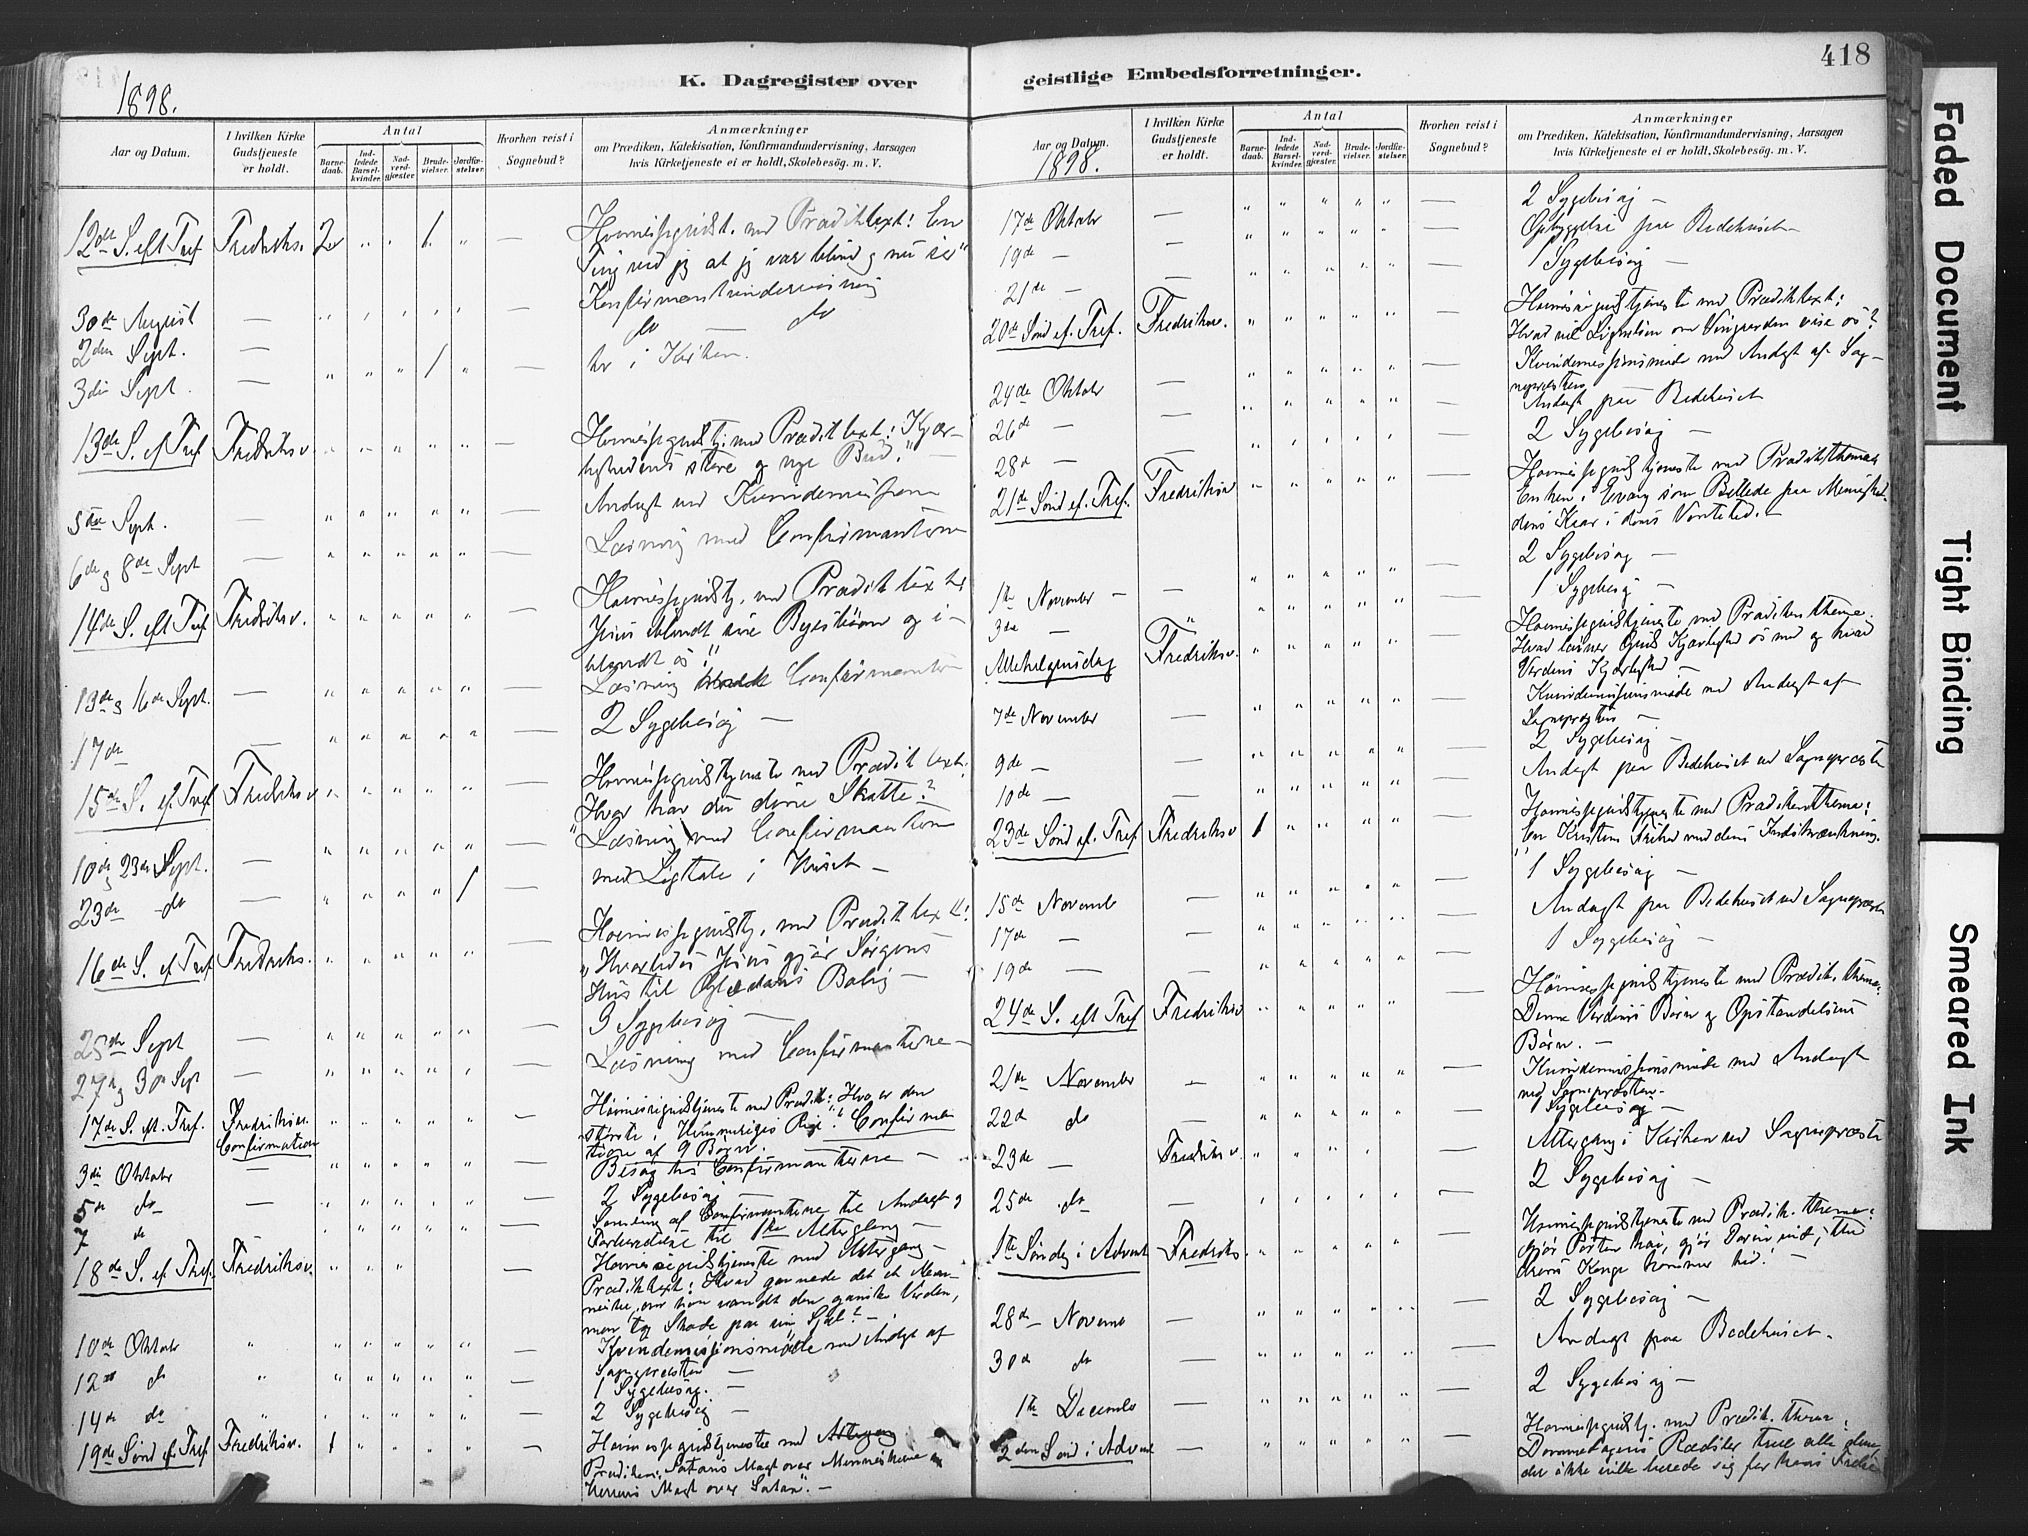 418
K. Dagregister over geistlige Embedsforretninger.
1898.
Aar og Datum.
I hvilken Kirke Gudstjeneste er holdt.
Antal
Barnedaab.
Indledede Barselkvinder.
Nadverdgjæster.
Brudevielser.
Jordfæstelser.
Hvorhen reist i Sognebud?
Anmærkninger
om Prædiken, Katekisation, Konfirmandundervisning, Aarsagen
hvis Kirketjeneste ei er holdt, Skolebesøg. m. V.
12te S. eft Tref Fredriks. 2 " " 1 " — Høimessegudst. med Præditext: En
Ting ved jeg at jeg var blind og nu ser"
30te August — Konfirmantundervisning
2den Sept. — do — do
3die Sept. — 1 — i Kirken.
13de S. ef Tref Fredriksv. — Høimessegudstj. med Præditext: Kjær-
lighedens store og nye Bud." —
5te Sept. — Andagt ved Kvindemissionen
6te og 8de Sept — Læsning med Confirmanterne
14de S. eft Tref Fredriksv. — Høimessegudstj. med Præditext
Jesus blandt sine Bysbørn og i-
blandt os."
13de og 16de Sept. — Læsning Confirmanter
17de — 2 Sygebesøg —
15de S. ef. Tref Fredriksv — Høimessegudstjeneste med Præditext:
Hvor har du dine Skatte?
og 23de Sept. — Læsning med Confirmanterne
23de do — 1 — med Ligtale i Huset —
16de S. ef Tref Fredriks. — Høimessegudstj. med Præditext:
"Hvorledes Jesus gjør Sorgens
Hus til Glædens Bolig —
25de Sept — 3 Sygebesøg —
27de og 30te Sept — Læsning med Confirmanterne —
17de S. eft. Tref. Fredriksv. Confirmation — Høimessegudstjeneste med Prædik: Hvo er den
største i Himmeriges Rige"? Confirma-
tion af 9 Børn. —
3die Oktober — Besøg hos Confirmanterne —
5te do — 2 Sygebesøg —
7 do Samling af Confirmanterne til Andagt og
Forberedelse til 1ste Altergang —
18de S. ef. Tref. Fredriksv. — Høimessegudstjeneste med Altergang —
Præditext: Hvad gavnede det et Men-
neske, om han vandt den ganske Verden,
men tog Skade paa sin Sjæl? —
10de Oktober — Kvindemissionsmøde med Andagt af
Sognepresten —
12te do — 1 Sygebesøg. —
14de do — 2 Sygebesøg —
19de Sønd ef. Tref Fredriksv. 1 — Høimessegudstjeneste med Altergang
Prædiken: Satans Magt over Menneskene
Herrens Magt over Satan". —
Aar og Datum.
1898.
I hvilken Kirke Gudstjeneste er holdt.
Antal
Barnedaab.
Indledede Barselkvinder.
Nadverdgjæster.
Brudevielser.
Jordfæstelser.
Hvorhen reist i Sognebud?
Anmærkninger
om Prædiken, Katekisation, Konfirmandundervisning, Aarsagen
hvis Kirketjeneste ei er holdt, Skolebesøg. m. V.
17de Oktober — 2 Sygebesøg —
19de — Opbyggelse paa Bedehuset —
21de — 1 Sygebesøg —
20de Sønd ef. Tref. Fredriksv. — Høimessegudstjeneste med Præditext:
Hvad vil Lignelsen om Vingaarden vise os?
24de Oktober — Kvindemissionsmøde med Andagt af Sog-
nepresten
26de — Andagt paa Bedehuset
28de — 2 Sygebesøg —
21de Sønd ef. Tref. Fredriksv — Høimessegudstjeneste med Prædikthema
Enken i Evang som Billede paa Menighe-
dens Kaar i dens Ventetid. —
2 Sygebesøg —
1ste November — 1 Sygebesøg —
3die — "
Allehelgensdag Fredriksv. — Høimessegudstjeneste med Prædiken thema.
Hvad lønner Guds Kjærlighed os med og hvad
Verdens Kjærlighed —
7de November — Kvindemissionsmøde med Andagt af
Sognepresten —
9de — 2 Sygebesøg —
10de — Andagt paa Bedehuset ved Sognepresten
23de Sønd ef. Tref Fredriksv 1 — Høimessegudstjeneste med Prædikenthema:
En Kristens Frihed med dens Indskrænkning."
15de November — 1 Sygebesøg —
17de — Andagt paa Bedehuset ved Sognepresten
19de — 1 Sygebesøg —
24de S. eft Tref Fredriksv — Høimessegudstjeneste med Prædik. thema:
Denne Verdens Børn og Opstandelsens
Børn. —
21de November — Kvindemissionsmøde med Andagt
ved Sognepresten.
22de do — 1 Sygebesøg —
23de — Fredriksv. — Altergang i Kirken ved Sognepresten
25de do — 2 Sygebesøg —
1ste Søndag i Advent Fredriks. — Høimessegudstjeneste med Prædik. thema:
Gjør Porten høi, gjør Døren vid,
Ærens Konge kommer hid! —
28de November — 2 Sygebesøg —
30te do — Andagt paa Bedehuset.
1ste December — 2 Sygebesøg —
2den Sønd i Advent — Høimessegudstj. med Prædik. thema:
Dommedagens Rædsler true alle dem,
der ikke ville berede sig for hans
Faded Document
Tight Binding
Smeared Ink